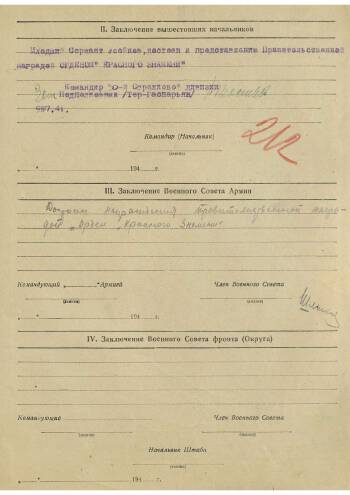 II. Заключение вышестоящих начальников
Младший Сержант достоин к представлению Правительственной
наградой ОРДЕНОМ "КРАСНОГО ЗНАМЕНИ"
Командир Стрелковой дивизии
Подполковник /Тер-Гаспарьян/
Командир (Начальник)
(подпись)
" " 194 г.
212
III. Заключение Военного Совета Армии
Достоин награждения правительственной награ-
дой Орден "Красного Знамени"
Командующий " " Армией
Член Военного Совета
(подпись)
(подпись)
" " 194 г.
IV. Заключение Военного Совета фронта (Округа)
Командующий
Член Военного Совета
(подпись)
(подпись)
Начальник Штаба
(подпись)
" " 194 г.